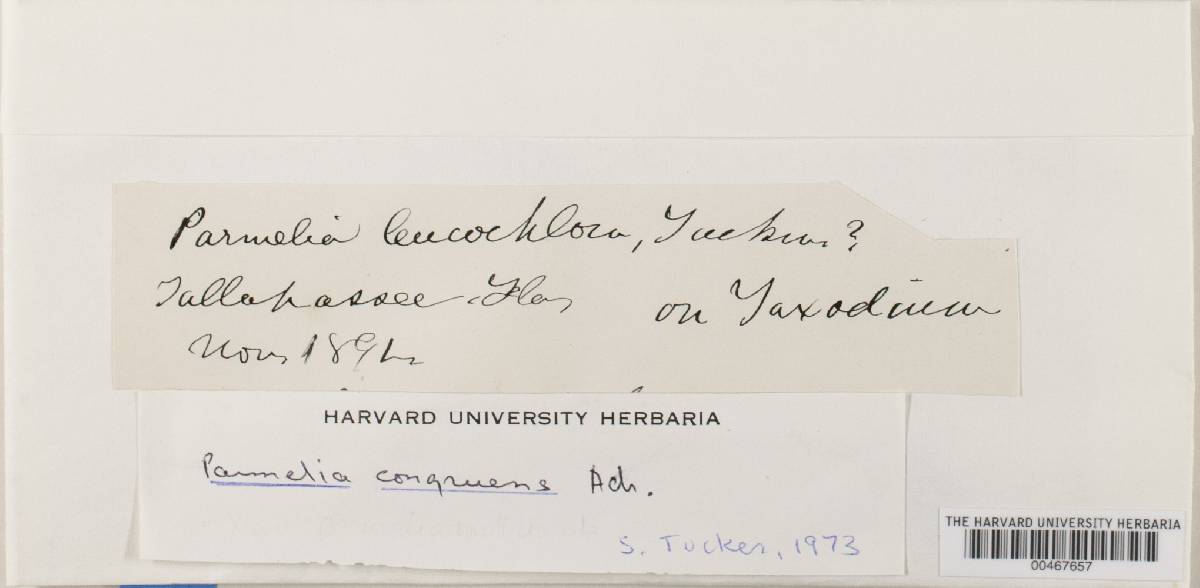 Parmelia leucochlora, Tuckm?
Tallahassee. Fla, on Taxodium
Nov,
HARVARD UNIVERSITY HERBARIA
Parmelia congruens Ach.
S. Tucker, 1973
THE HARVARD UNIVERSITY HERBARIA
00467657